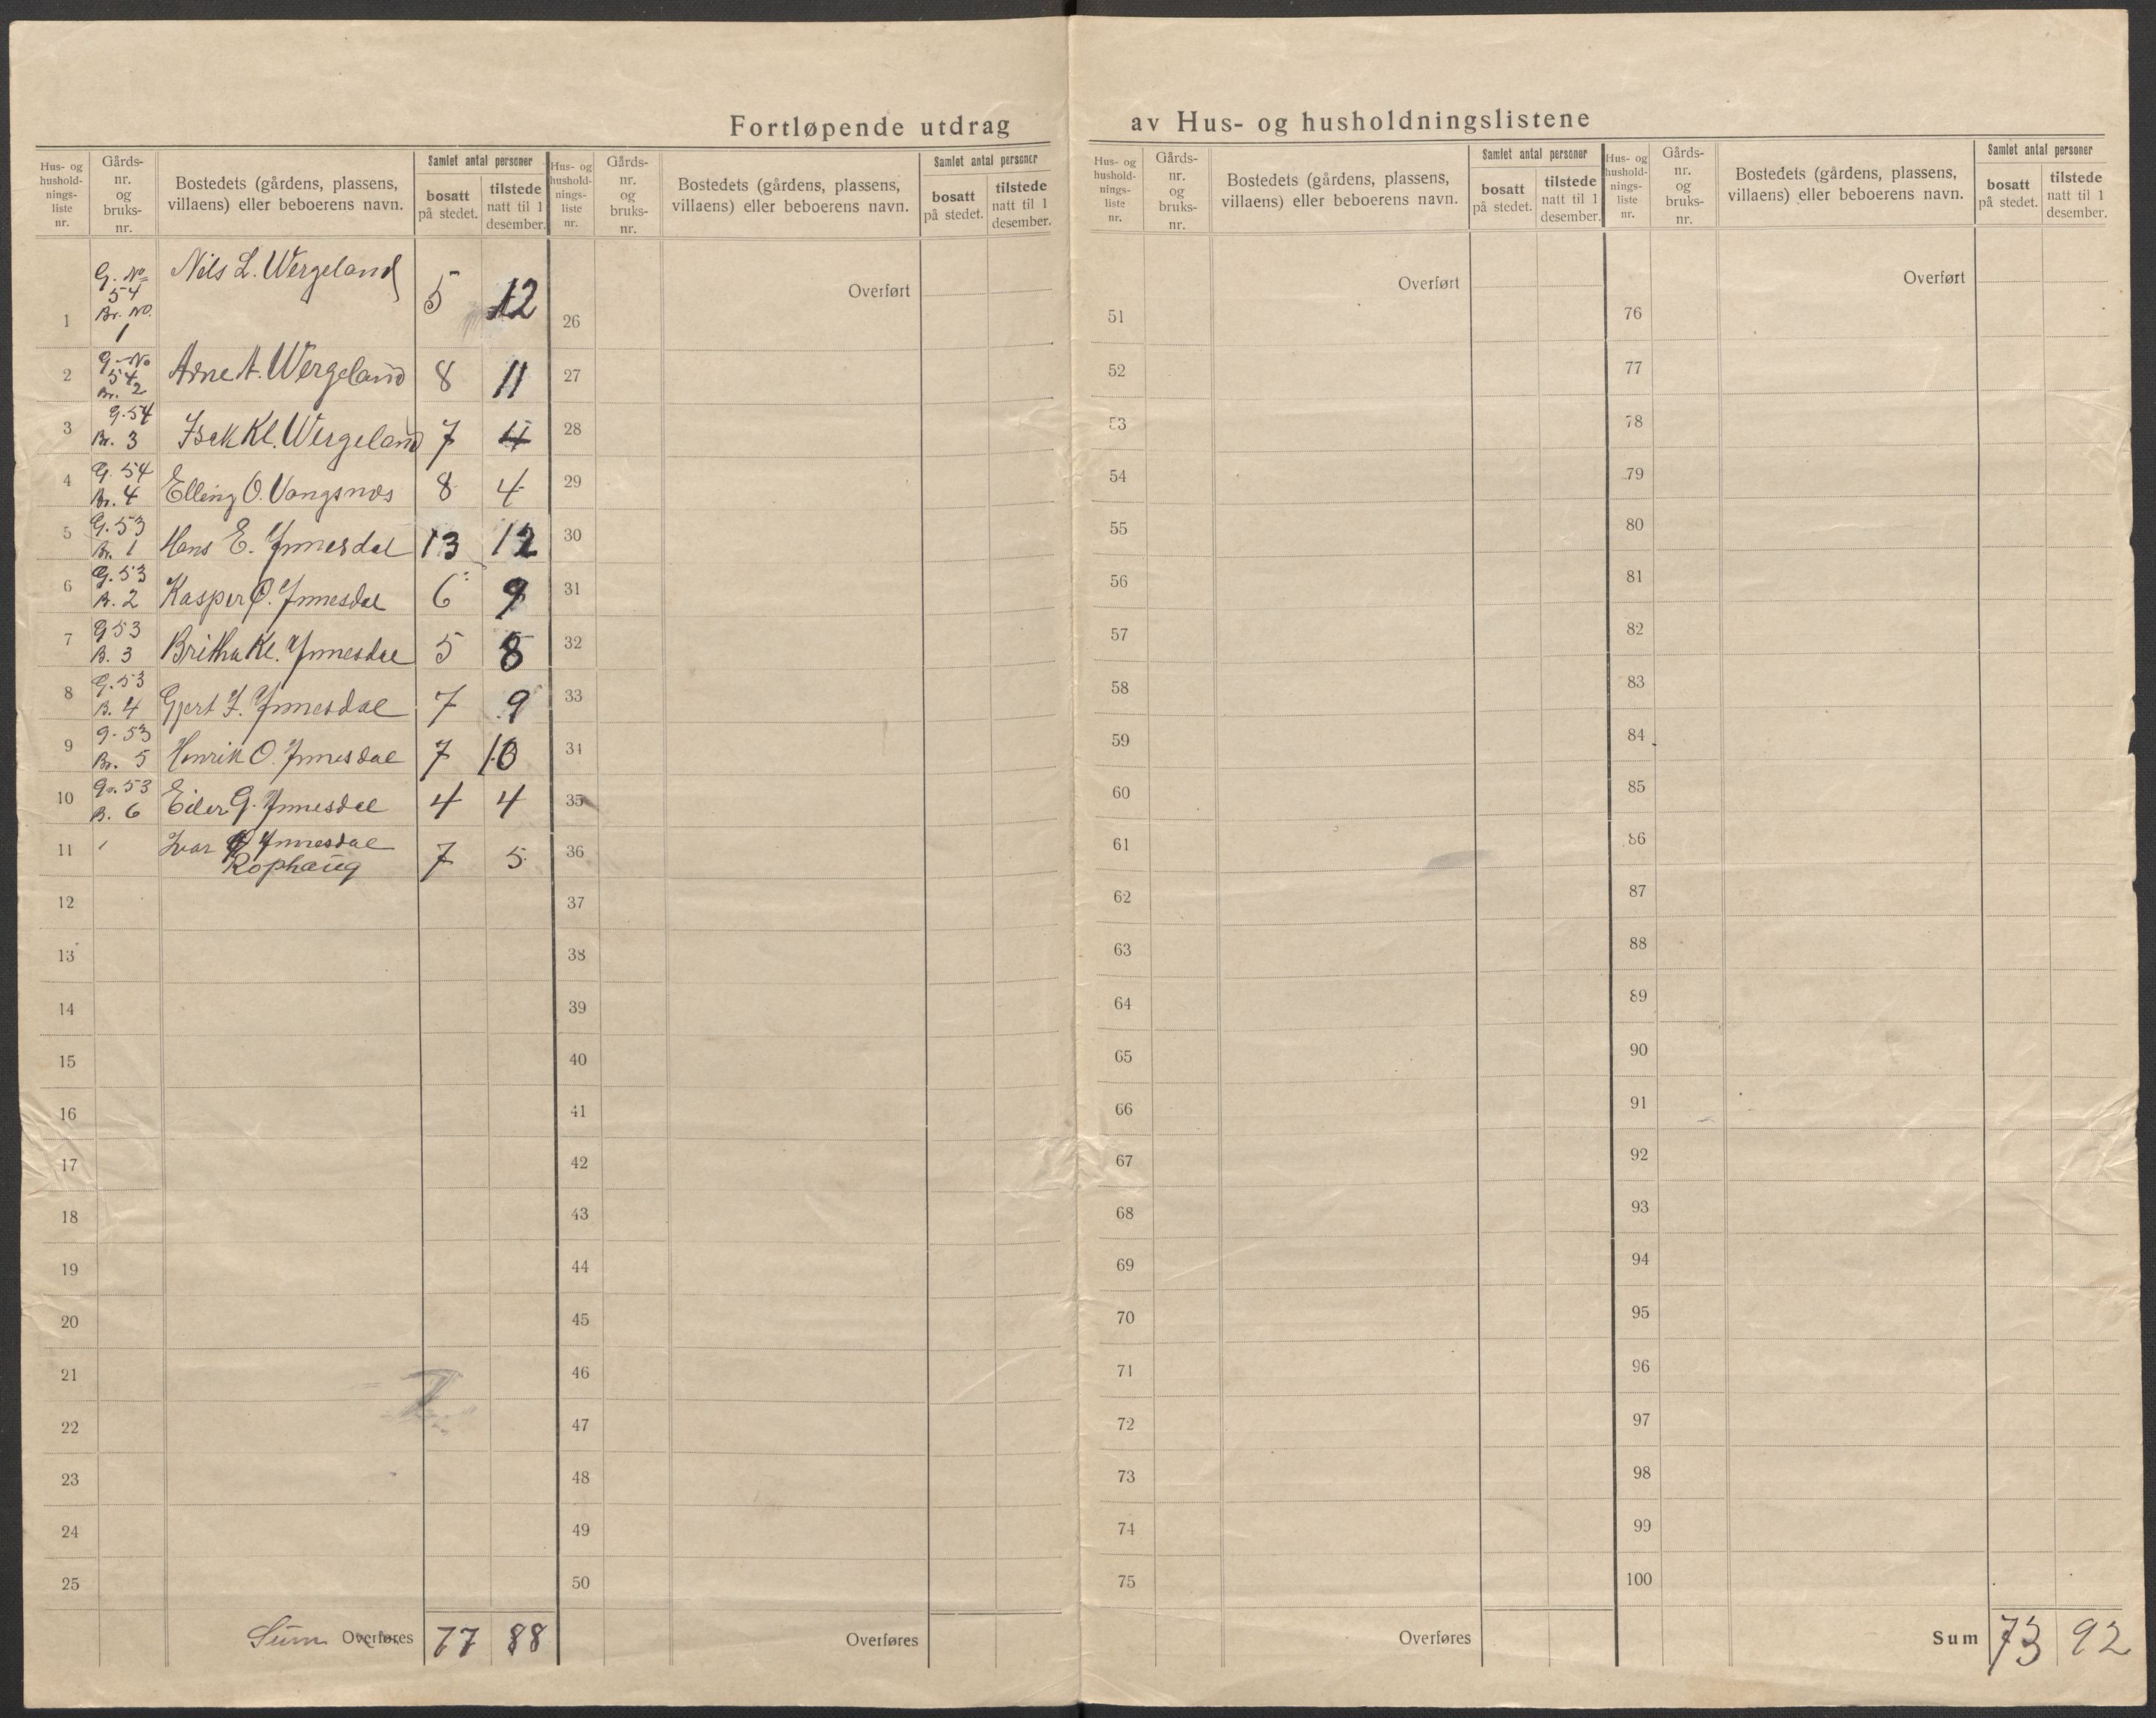 Fortløpende utdrag av Hus- og husholdningslistene
Hus- og hushold- nings- liste nr.
Gårds- nr. og bruks- nr.
Bostedets (gårdens, plassens, villaens) eller beboerens navn.
Samlet antal personer
bosatt på stedet.
tilstede natt til 1 desember.
Hus- og hushold- nings- liste nr.
Gårds- nr. og bruks- nr.
Bostedets (gårdens, plassens, villaens) eller beboerens navn.
Samlet antal personer
bosatt på stedet.
tilstede natt til 1 desember.
Hus- og hushold- nings- liste nr.
Gårds- nr. og bruks- nr.
Bostedets (gårdens, plassens, villaens) eller beboerens navn.
Samlet antal personer
bosatt på stedet.
tilstede natt til 1 desember.
Hus- og hushold- nings- liste nr.
Gårds- nr. og bruks- nr.
Bostedets (gårdens, plassens, villaens) eller beboerens navn.
Samlet antal personer
bosatt på stedet.
tilstede natt til 1 desember.
1 G. No 54 Br. No. 1 Nils L. Wergeland 5 12
2 G. No 54 Br. 2 Arne A. Wergeland 8 11
3 g. 54 Br. 3 Isak Kl. Wergeland 7 4
4 G. 54 Br. 4 Elling O. Vangsnæs 8 4
5 G. 53 Br. 1 Hans E. Ynnesdal 13 12
6 G. 53 B. 2 Kasper O. Ynnesdal 6 9
7 G 53 B. 3 Britha Kl. Ynnesdal 5 8
8 G. 53 B. 4 Gjert I. Ynnesdal 7 9
9 g. 53 Br. 5 Henrik O. Ynnesdal 7 10
10 Gr. 53 B. 6 Eiler G. Ynnesdal 4 4
11 Ivar Ynnesdal
Rophaug 7 5
12
13
14
15
16
17
18
19
20
21
22
23
24
25
Sum Overføres 77 88
Overført
26
27
28
29
30
31
32
33
34
35
36
37
38
39
40
41
42
43
44
45
46
47
48
49
50
Overføres
Overført
51
52
53
54
55
56
57
58
59
60
61
62
63
64
65
66
67
68
69
70
71
72
73
74
75
Overføres
Overført
76
77
78
79
80
81
82
83
84
85
86
87
88
89
90
91
92
93
94
95
96
97
98
99
100
Sum 73 92